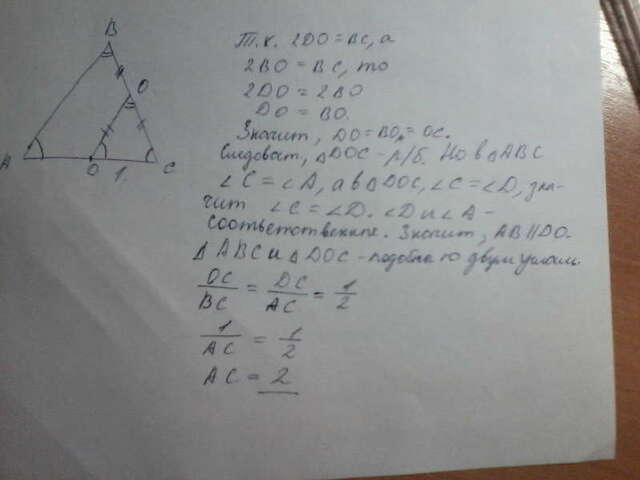 B
O
A
O
1.
C
Т.к. 2DO = BC, а
2BO = BC, то
2DO = 2BO
DO = BO.
Значит, DO = BO = OC.
Следоват, △DOC - р/б. Но в △ABC
∠C = ∠A, а в △DOC, ∠C = ∠D, зна-
чит ∠C = ∠D. ∠D и ∠A -
соответственные. Значит, AB || DO.
△ABC и △DOC - подобна по двум углам.
OC/BC = DC/AC = 1/2
1/AC = 1/2
AC = 2